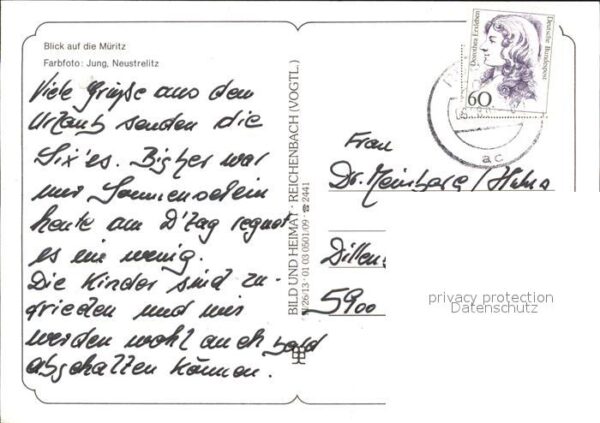 Blick auf die Müritz
Farbfoto: Jung, Neustrelitz
Viele Grüße aus dem
Urlaub senden die
Six'es. Bisher war
nur Sonnenschein
heute am D'Tag regnet
es ein wenig.
Die Kinder sind zu-
frieden und wir
werden wohl auch bald
abschalten können.
BILD UND HEIMAT · REICHENBACH (VOGTL.)
01 03 0501/09 · ☎ 2441
Dorothea Erxleben
Deutsche Bundespost
60
ac
Frau
Dr.
Dillen
5900
privacy protection
Datenschutz